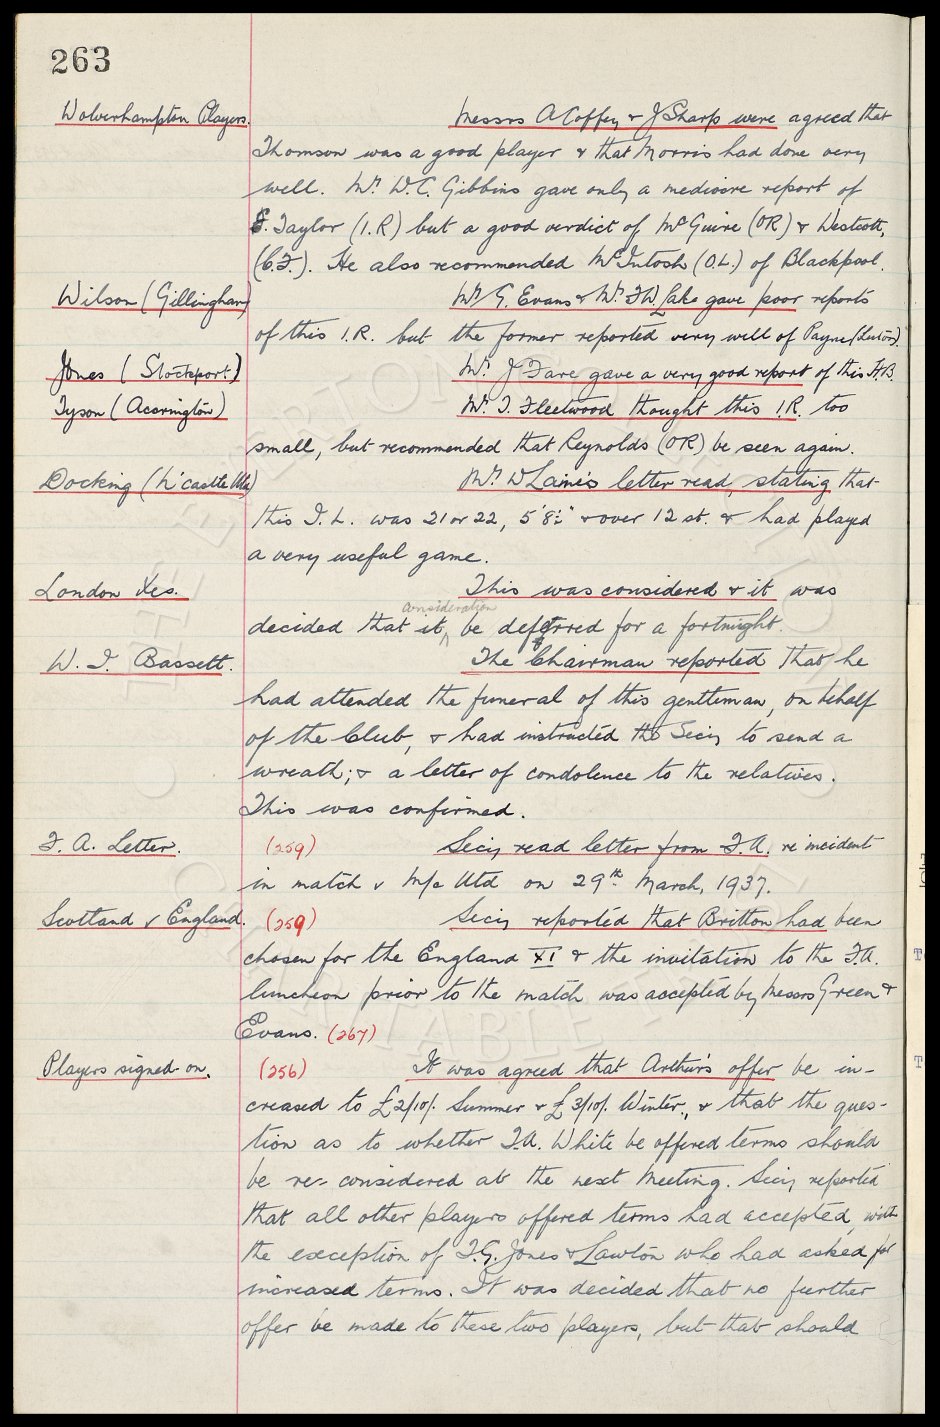 263
Wolverhampton Players. Messrs A Coffey & J Sharp were agreed that
Thomson was a good player & that Morris had done very
well. Mr. W.C. Gibbins gave only a mediocre report of
S. Taylor (I.R) but a good verdict of McGuire (OR) & Westcott,
(C.F.). He also recommended McIntosh (O.L.) of Blackpool.
Wilson (Gillingham) Mr G. Evans & Mr. F.W. Lake gave poor reports
of this I.R. but the former reported very well of Payne (Luton).
Jones (Stockport.) Mr. J Fare gave a very good report of this H.B.
Tyson (Accrington) Mr. T. Fleetwood thought this I.R. too
small, but recommended that Reynolds (OR) be seen again.
Docking (N'castle Utd) Mr. W Laine's letter read, stating that
this I.L. was 21 or 22, 5'8½" & over 12 st. & had played
a very useful game.
London Xes. This was considered & it was
consideration
decided that it ^ be deferred for a fortnight.
W. I. Bassett. The Chairman reported that he
had attended the funeral of this gentleman, on behalf
of the Club, & had instructed the Secy to send a
wreath; & a letter of condolence to the relatives.
This was confirmed.
F. A. Letter. (259) Secy read letter from F.A. re incident
in match v M/c Utd on 29th March, 1937.
Scotland v England. (259) Secy reported that Britton had been
chosen for the England XI & the invitation to the F.A.
luncheon prior to the match was accepted by Messrs Green &
Evans. (267)
Players signed on. (256) It was agreed that Arthur's offer be in-
creased to £2/10/. Summer & £3/10/. Winter., & that the ques-
tion as to whether T.A. White be offered terms should
be re- considered at the next Meeting. Secy reported
that all other players offered terms had accepted, with
the exception of T.G. Jones & Lawton who had asked for
increased terms. It was decided that no further
offer be made to these two players, but that should